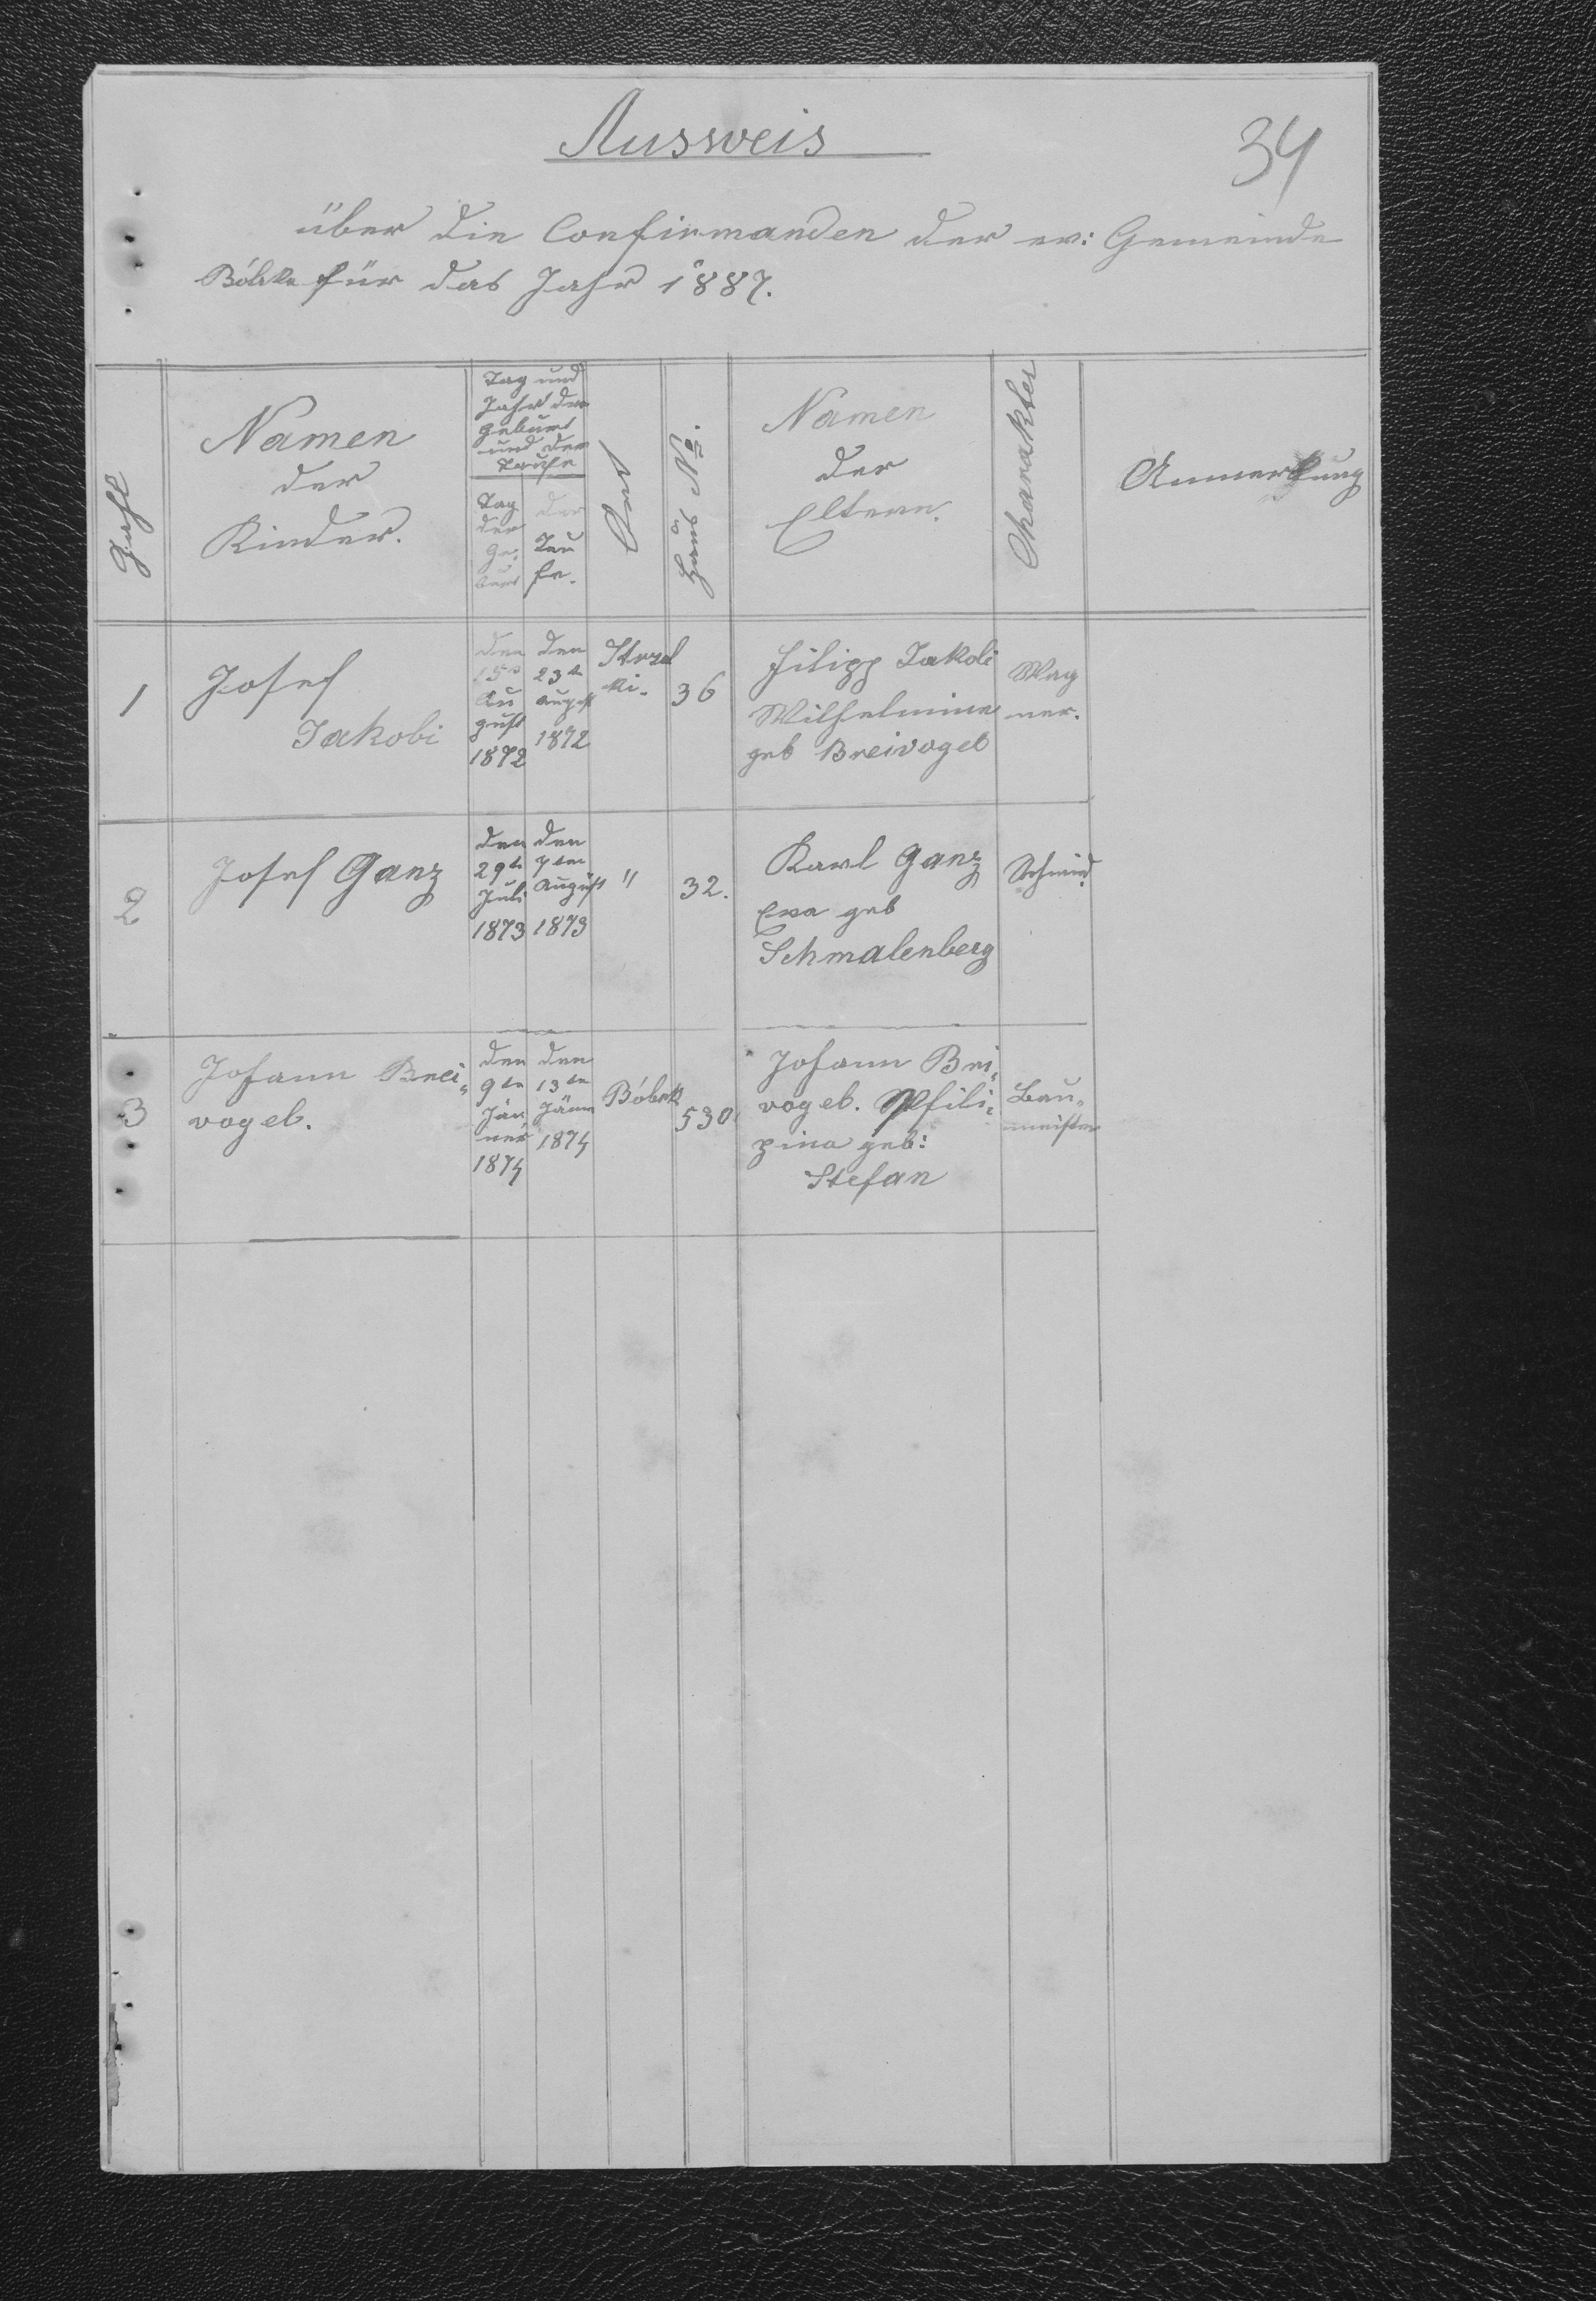 Ausweis
34
über die Confirmanden der ev: Gemeinde
Bóbrka für das Jahr 1887.
Zahl
Namen
der
Kinder.
Tag und
Jahr der
Geburt
und der
Taufe
Tag
der
Ge,
burt
der
Tau
fe.
Ort
Haus No.
Namen
der
Eltern.
Charakter
Anmerkung
1
Josef
Jakobi
den
15n
Au
gust
1872
den
23tn
August
1872
Strzel
ki.
36
Filipp Jakobi
Wilhelmine
geb Breivogel
Wag
ner.
2
Josef Ganz
den
29tn
Juli
1873
den
7ten
August
1873
"
32.
Karl Ganz
Eva geb
Schmalenberg
Schmid.
3
Johann Brei„
vogel.
den
9tn
Jän
ner
1874
den
13tn
Jänn
1874
Bóbrk
530
Johann Brei„
vogel. Pfili„
pina geb:
Stefan
Bau„
meister